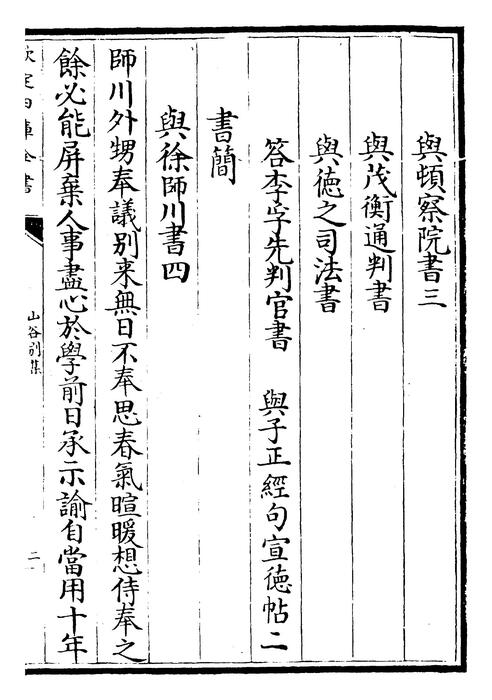 與頓察院書三
與茂衡通判書
與德之司法書
答李孚先判官書　與子正經句宣德帖二
書簡
與徐師川書四
師川外甥奉議别来無日不奉思春氣暄暖想侍奉之
餘必能屏棄人事盡心於學前日承示諭自當用十年
欽定四庫全書
山谷别集
二